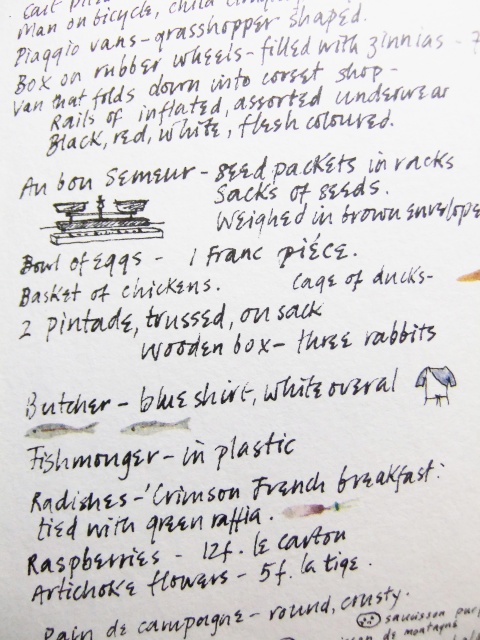 Man on bicycle, child
Piaggio vans-grasshopper shaped.
Box on rubber wheels-filled with zinnias -
Van that folds down into corset shop-
Rails of inflated, assorted underwear
Black, red, white, flesh coloured.
Au bon Semeur - seed packets in racks
Sacks of seeds.
Weighed in brown envelope
Bowl of eggs - 1 Franc piéce.
Basket of chickens. Cage of ducks-
2 pintade, trussed, on sack
Wooden box- three rabbits
Butcher - blue shirt, white overal
Fishmonger - in plastic
Radishes-'Crimson French breakfast:
tied with green raffia.
Raspberries - 12f. le carton
Artichoke flowers - 5f. la tige.
Pain de campagne - round, crusty.
saucisson pur
de montagne